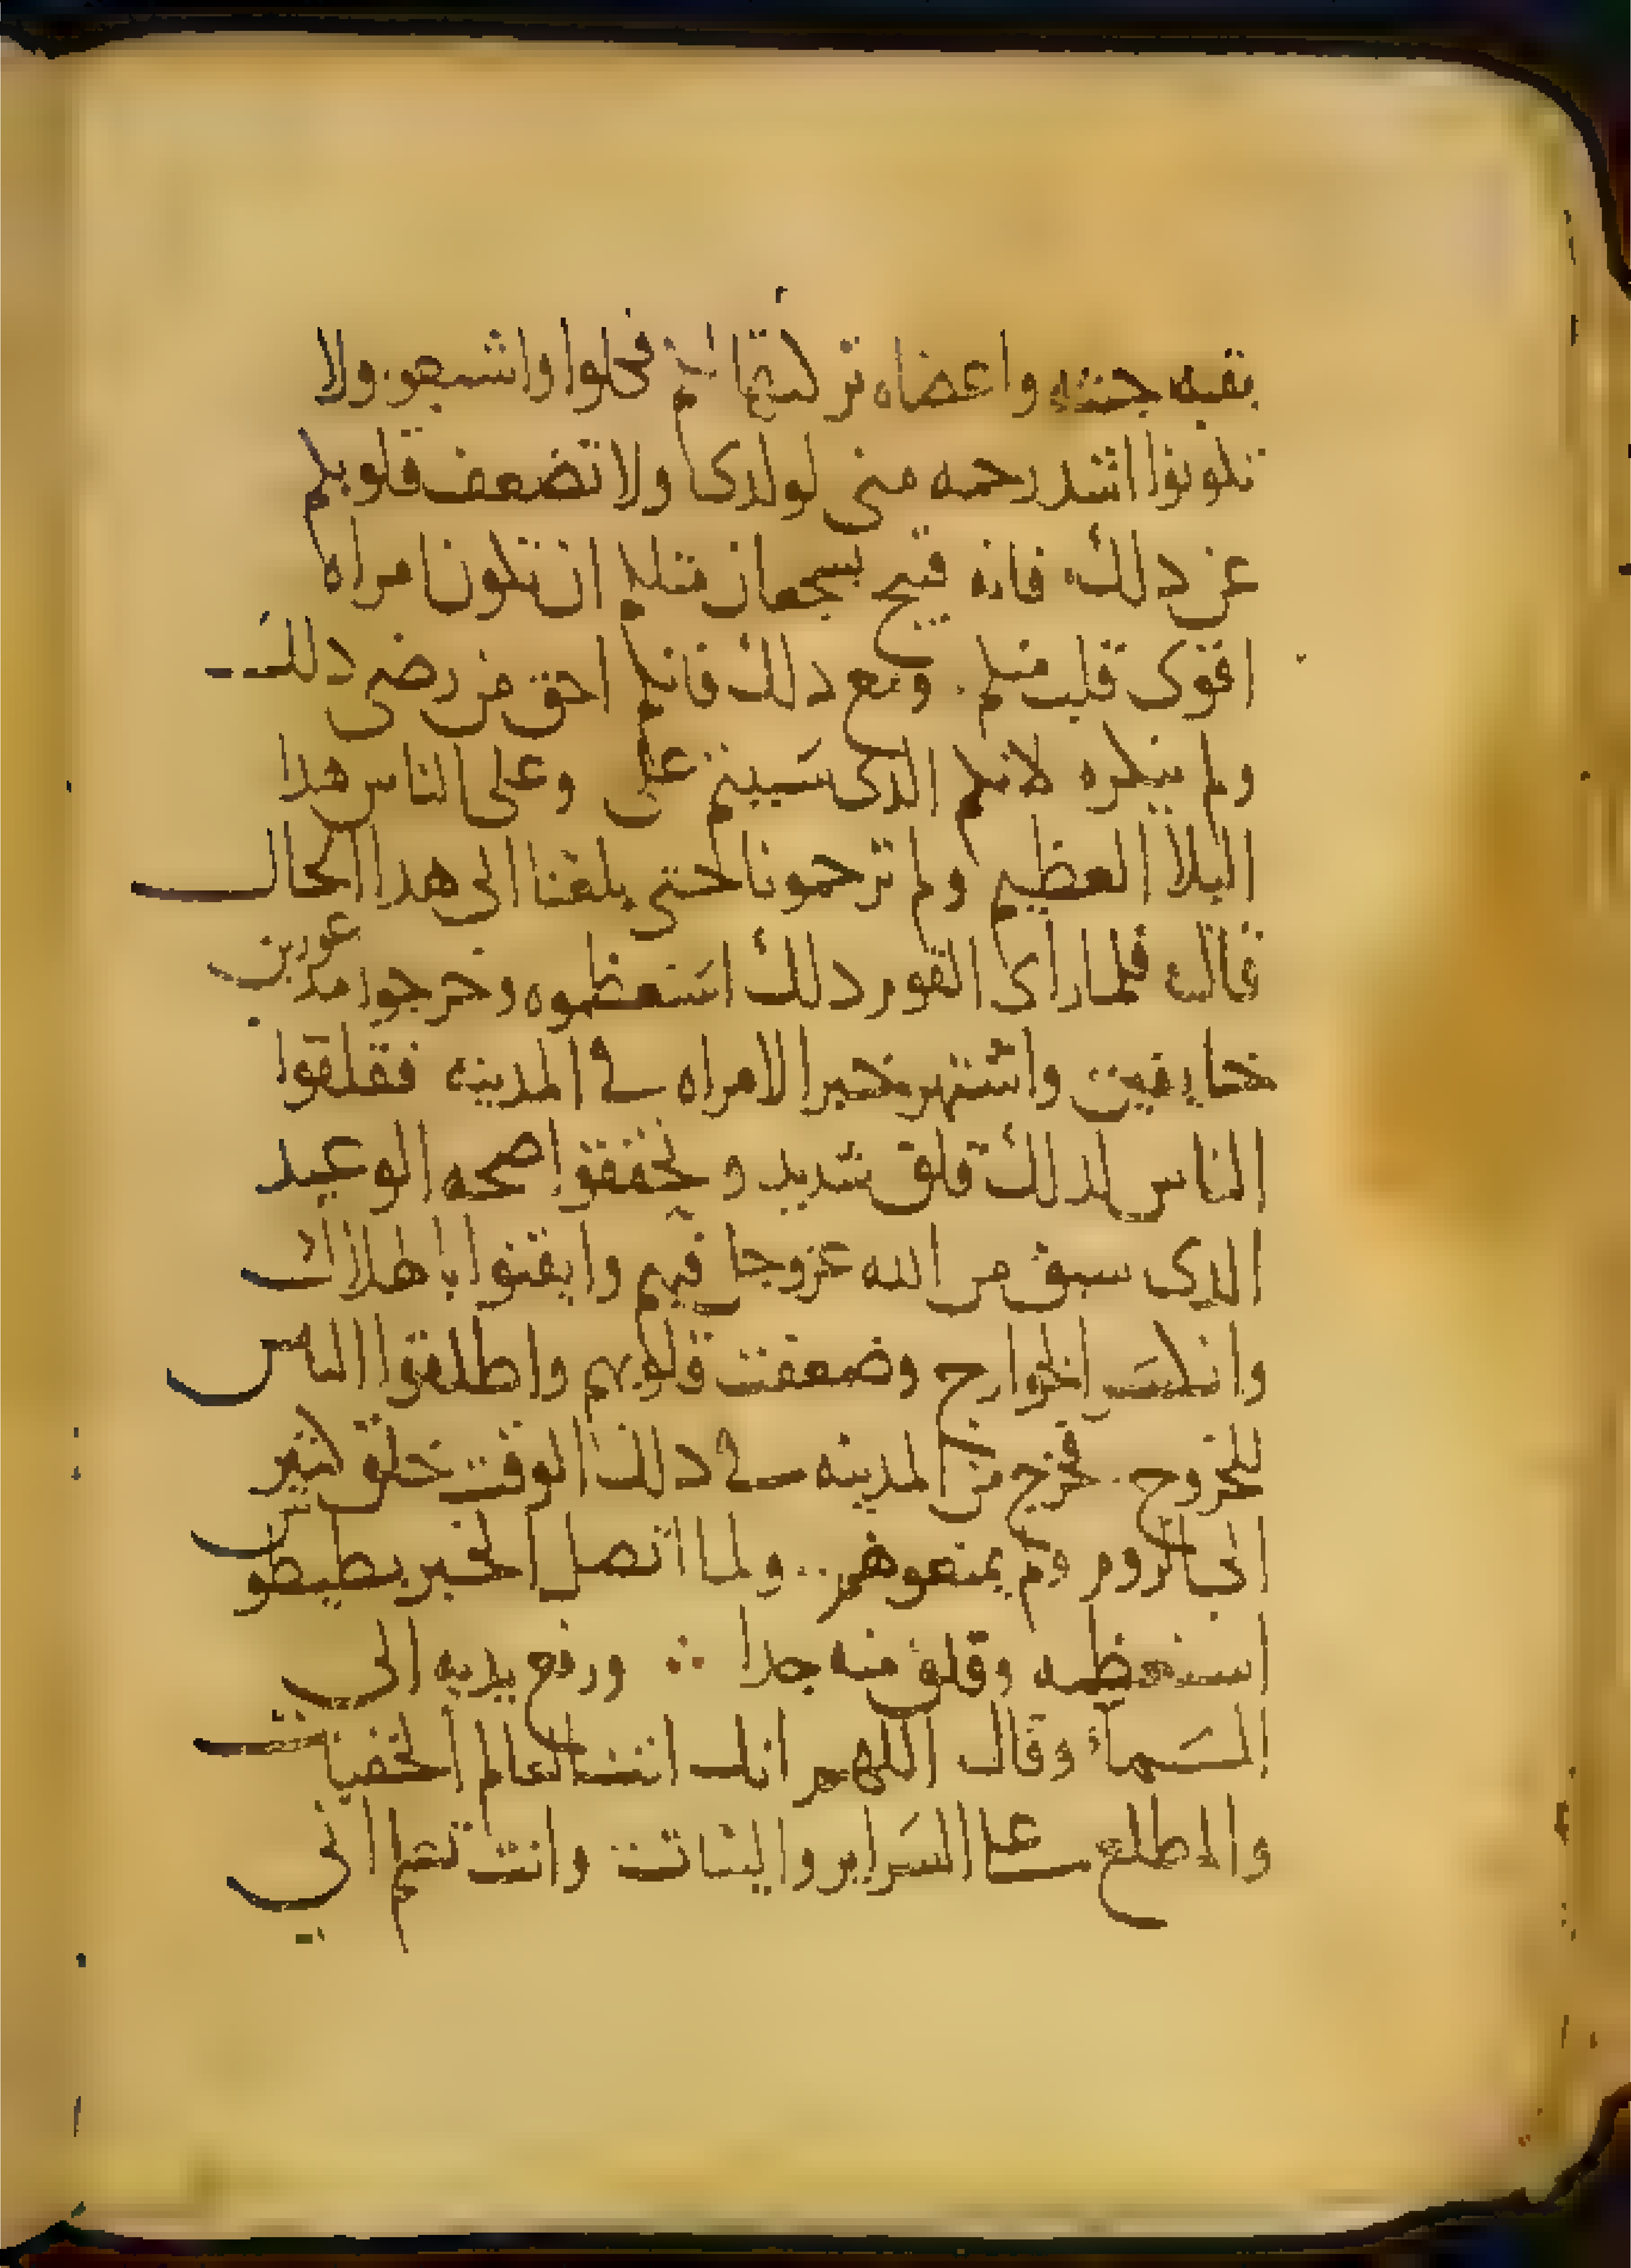 بقيه جثته واعضاه تركتها لكم فكلوا واشبعو. ولا
تكونوا اشد رحمه منى لولدى ولا تضعف قلوبكم
عن دلك فانه قبيح بسجعان مثلكم ان تكون امراه
اقوى قلب منكم. ومع دلك فانكم احق من رضى دلك
ولم ينكره لانكم الدى سببتم على وعلى الناس هدا
البلا العظيم ولم ترحمونا حتى بلغنا الى هدا الحال
قال فلما راى القوم دلك استعظموه وخرجوا مدعورين
خايفين واشتهر خبر الامراه في المدينه فقلقوا
الناس لدلك قلق شديد وتحققوا صحه الوعيد
الدى سبق من الله عز وجل فيهم وايقنوا بالهلاك
وانكسر الخوارج وضعفت قلوبهم واطلقوا الناس
للخروج. فخرج من المدينه في دلك الوقت خلق كثير
الى الروم ولم يمنعوهم.. ولما اتصل الخبر بطيطوس
استعظمه وقلق منه جدا ∴ ورفع يديه الى
السمآء وقال اللهم انك انت العالم الخفيات
والمطلع على السراير والنيات وانت تعلم اني